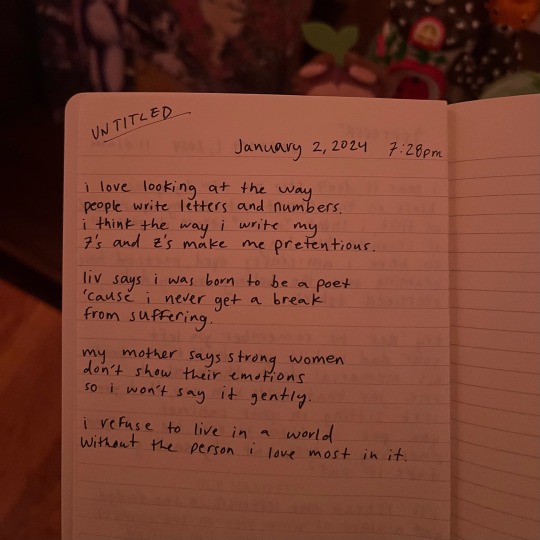 UNTITLED
January 2, 2024 7:28pm
i love looking at the way
people write letters and numbers.
i think the way i write my
7's and z's make me pretentious.
liv says i was born to be a poet
'cause i never get a break
from suffering.
my mother says strong women
don't show their emotions
so i won't say it gently.
i refuse to live in a world
without the person i love most in it.